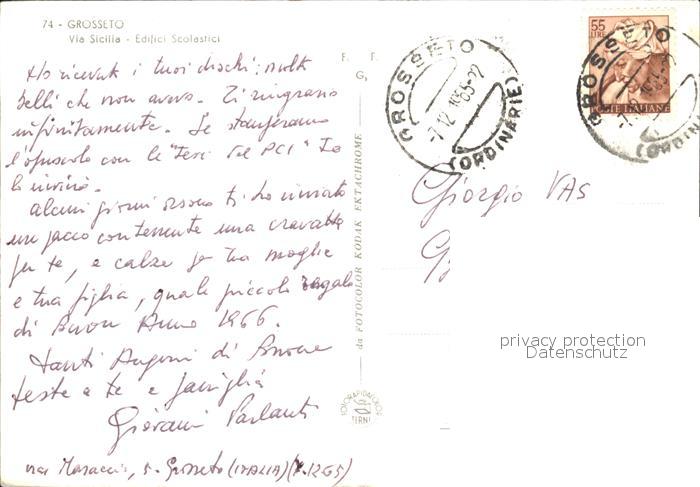 74 - GROSSETO
Via Sicilia - Edifici Scolastici
Ho ricevuto i tuoi dischi: molto
belli che non avevo. Ti ringrazio
infinitamente. Se stamperanno
l'opuscolo con le "Tesi del PCI" te
lo invierò.
Alcuni giorni orsono ti ho inviato
un pacco contenente una cravatta
per te, e calze per tua moglie
e tua figlia, quale piccolo regalo
di Buon Anno 1966.
Tanti Auguri di Buone
feste a te e famiglia
Giovanni Parlanti
via Masaccio, 5 - Grosseto (ITALIA) (7.12.65)
da FOTOCOLOR KODAK EKTACHROME
TERNI
GROSSETO
-7.12.1965-22
(ORDINARIE)
55
LIRE
POSTE ITALIANE
GROSSETO
(ORDINARIE)
Giorgio VAS
privacy protection
Datenschutz